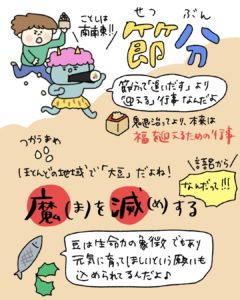 ことしは
南南東!!
せつ ぶん
節分
節分って「追いだす」より
"迎える"行事なんだよ
鬼退治ってより、本来は
福を迎えるための行事
つかうまめ
ほとんどの地域で「大豆」だよね!
語呂から
なんだって!!!
魔(ま)を滅(め)する
豆は生命力の象徴でもあり
元気に育ってほしいという願いも
込められてるんだよ♪